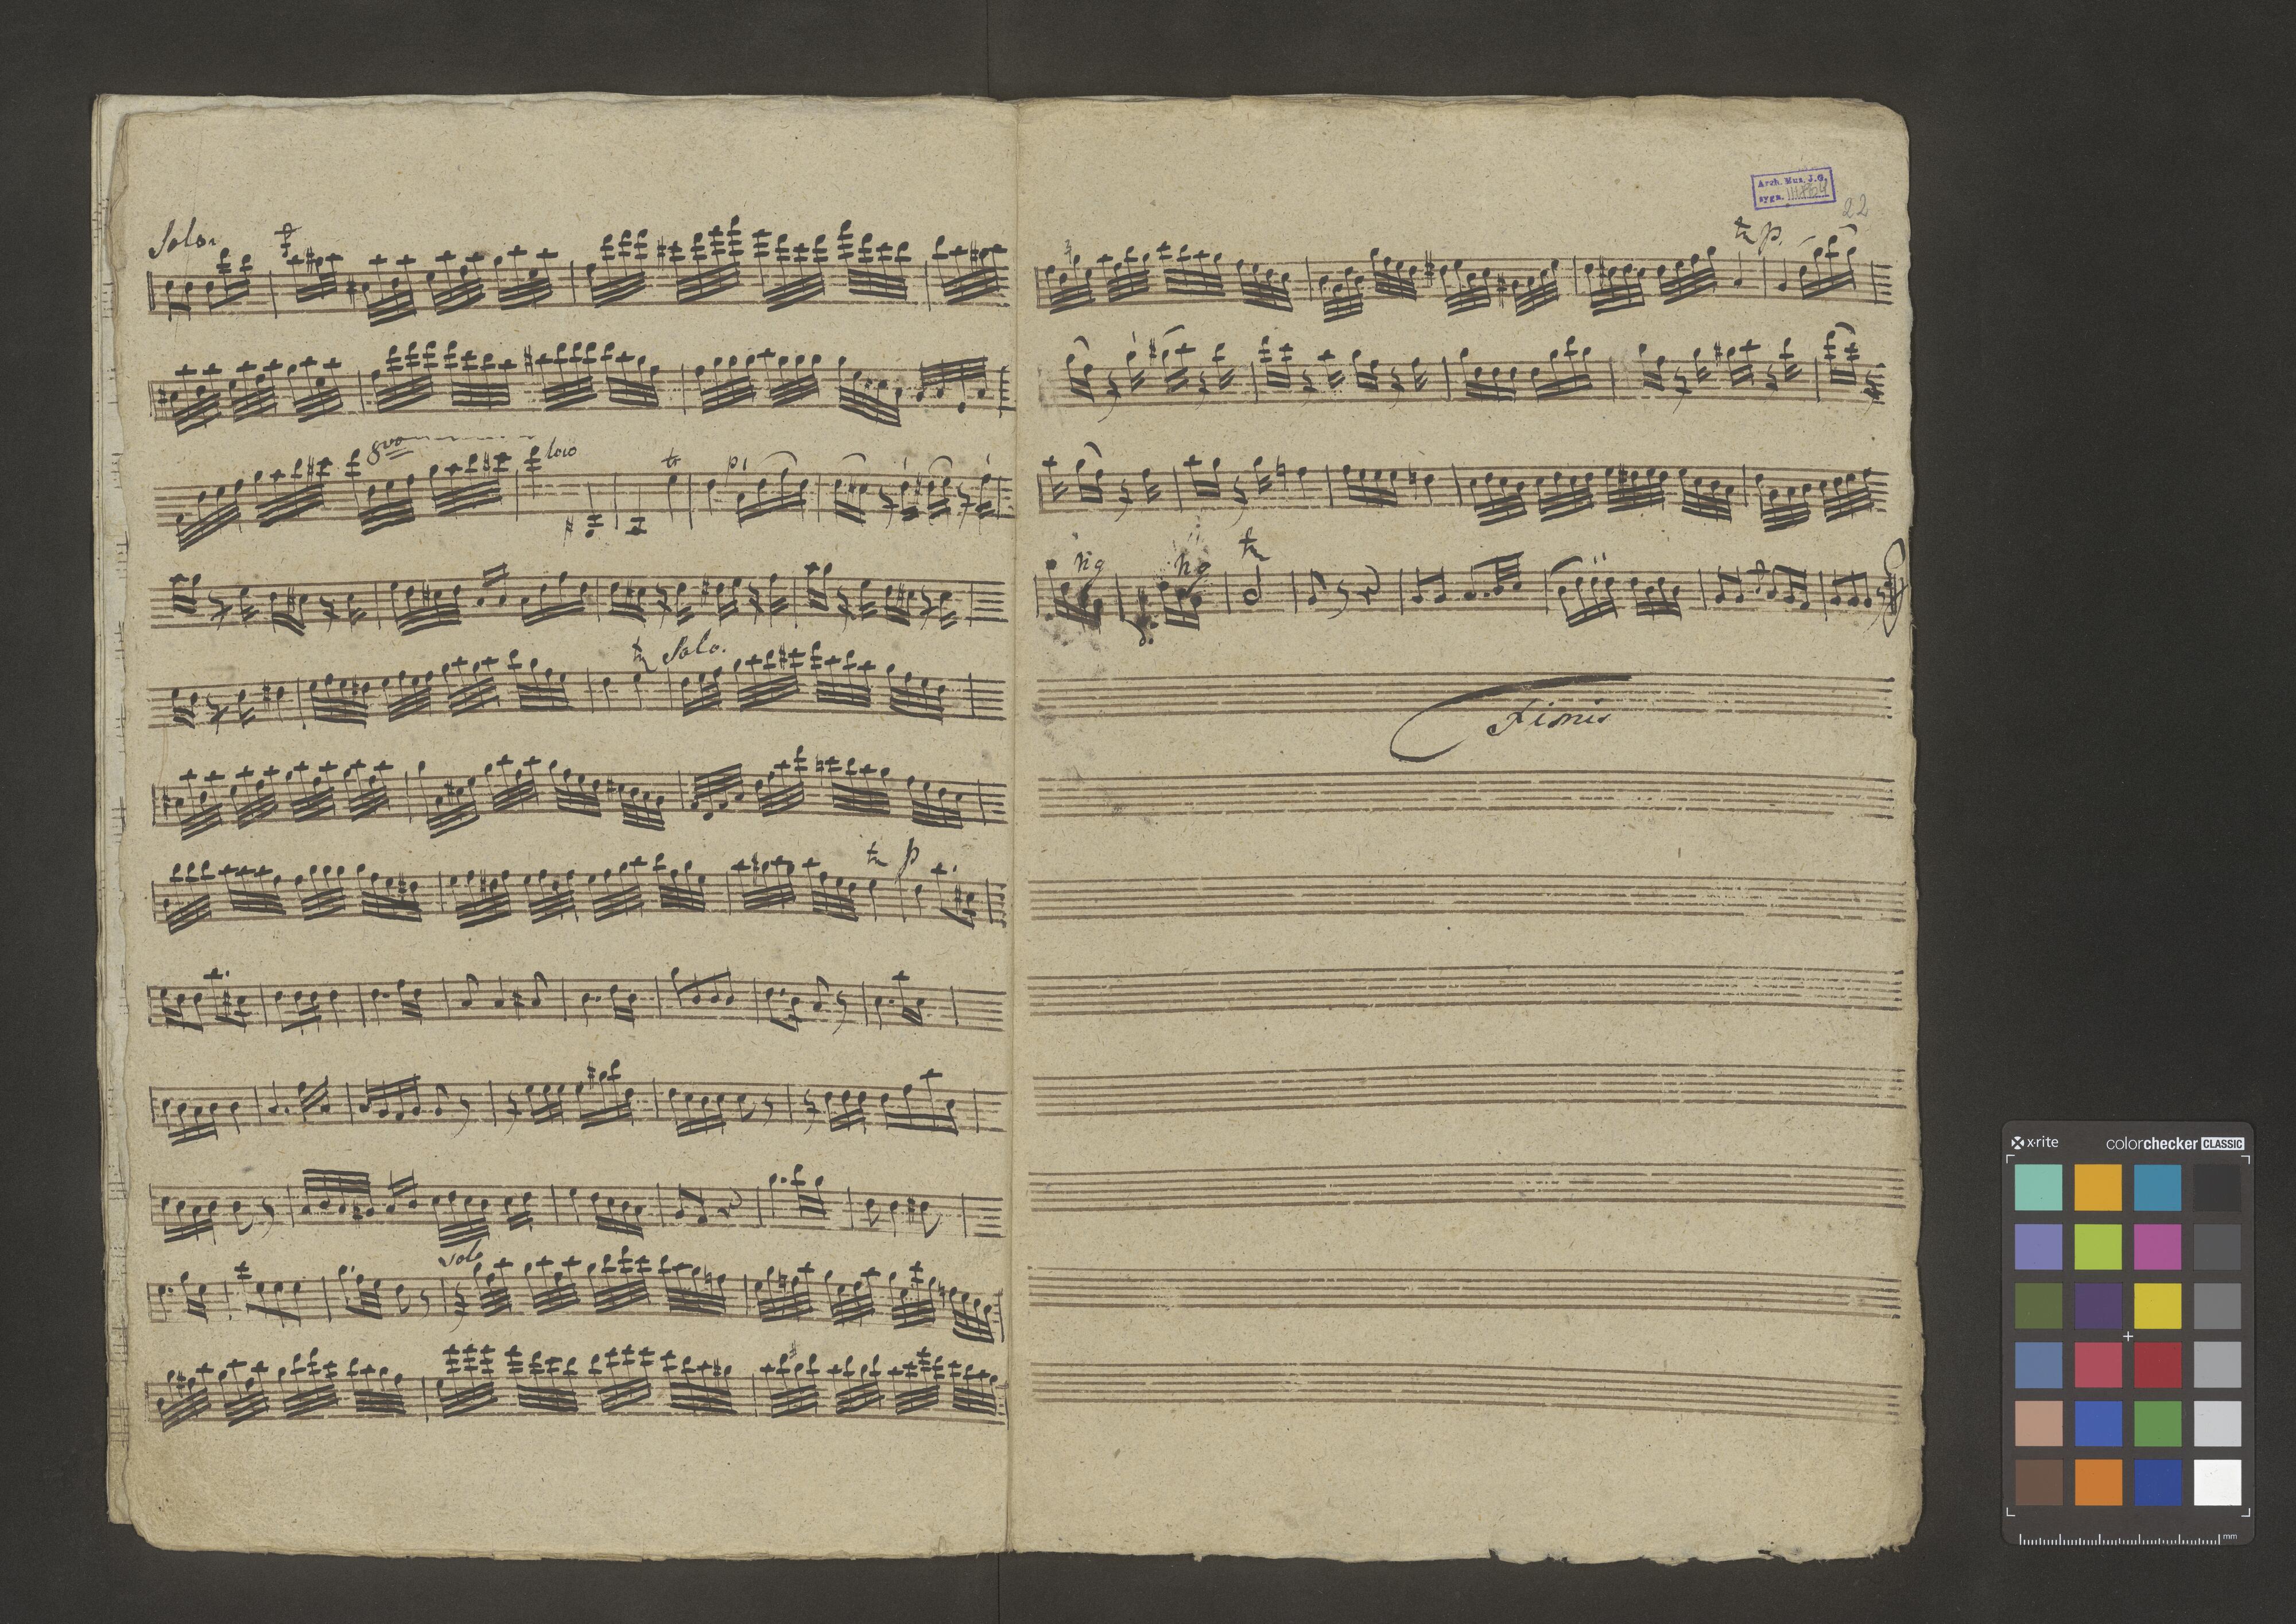 Solo.
8vo loco
tr
p
tr Solo.
tr p
solo
Arch. Mus. J.G.
sygn.
22
tr p.
3
tr
Finis
x-rite colorchecker CLASSIC
mm